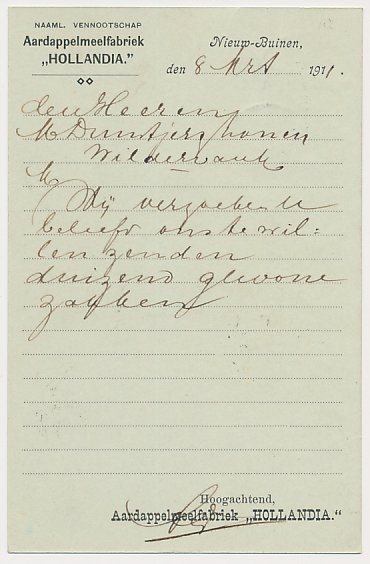 NAAML. VENNOOTSCHAP
Aardappelmeelfabriek
„HOLLANDIA.”
Nieuw-Buinen,
den 8 Mrt 1911.
den Heeren
M Duintjer zonen
Wildervank
M
Wij verzoeken U
beleefd ons te wil=
len zenden
duizend gewone
zakken
Hoogachtend,
Aardappelmeelfabriek „HOLLANDIA.”